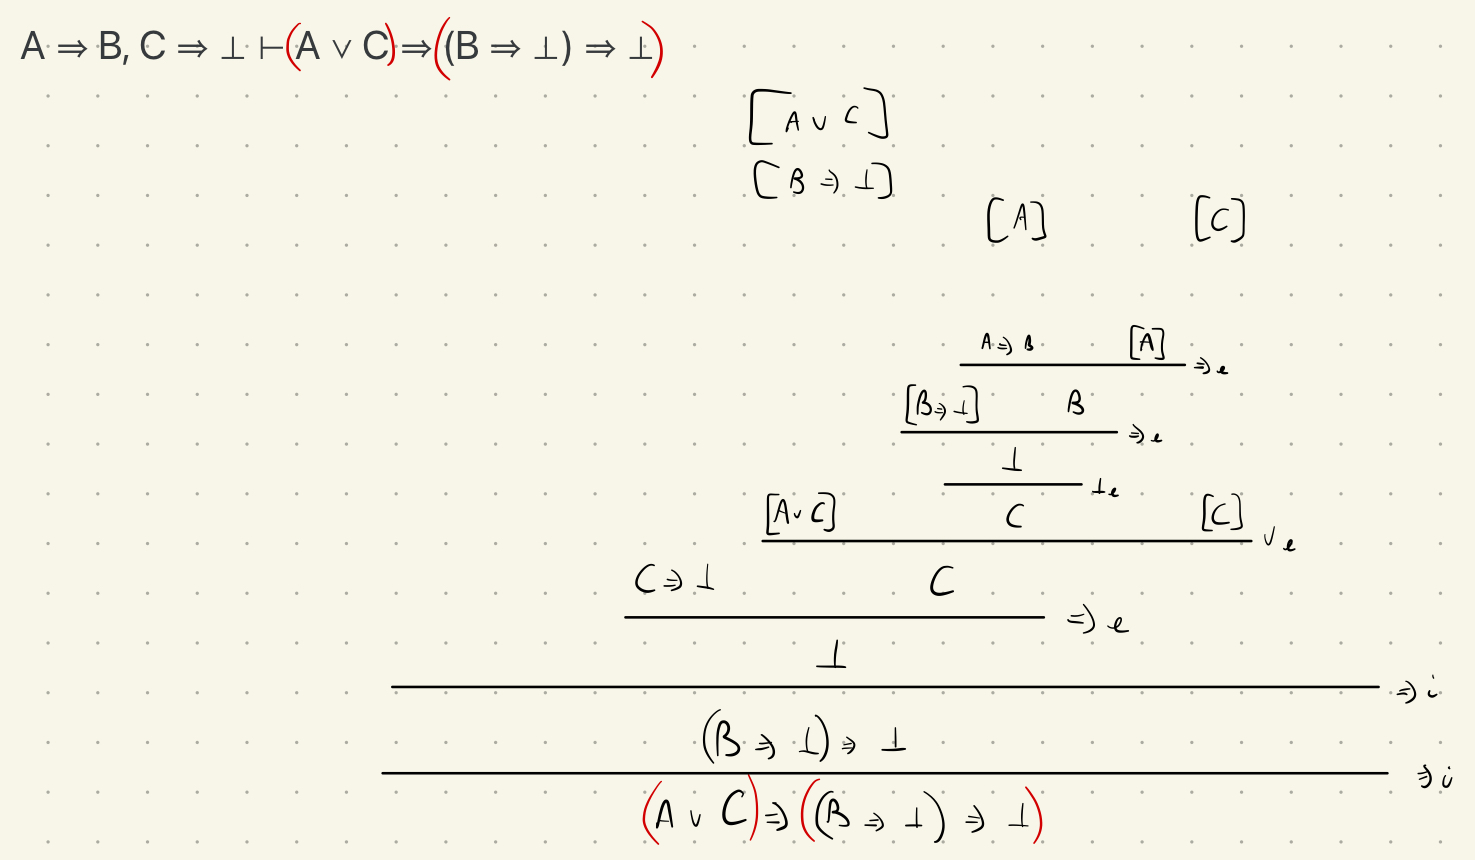 A ⇒ B, C ⇒ ⊥ ⊢ (A ∨ C) ⇒ ((B ⇒ ⊥) ⇒ ⊥)
[A ∨ C]
[B ⇒ ⊥]
[A] [C]
A ⇒ B [A] ⇒e
[B ⇒ ⊥] B ⇒e
⊥ ⊥e
[A ∨ C] C [C] ∨e
C ⇒ ⊥ C ⇒e
⊥ ⇒i
(B ⇒ ⊥) ⇒ ⊥ ⇒i
(A ∨ C) ⇒ ((B ⇒ ⊥) ⇒ ⊥)